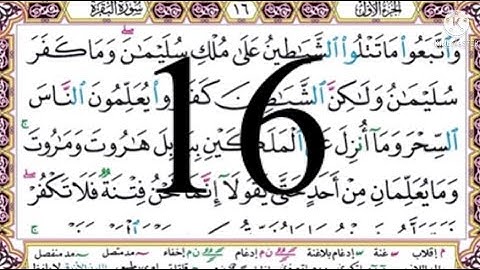 سورة البقرة
١٦
الجزء الأول
وَٱتَّبَعُوا۟ مَا تَتْلُوا۟ ٱلشَّيَـٰطِينُ عَلَىٰ مُلْكِ سُلَيْمَـٰنَ ۖ وَمَا كَفَرَ
سُلَيْمَـٰنُ وَلَـٰكِنَّ ٱلشَّيَـٰطِينَ كَفَرُوا۟ يُعَلِّمُونَ ٱلنَّاسَ
ٱلسِّحْرَ وَمَآ أُنزِلَ عَلَى ٱلْمَلَكَيْنِ بِبَابِلَ هَـٰرُوتَ وَمَـٰرُوتَ ۚ
وَمَا يُعَلِّمَانِ مِنْ أَحَدٍ حَتَّىٰ يَقُولَآ إِنَّمَا نَحْنُ فِتْنَةٌ فَلَا تَكْفُرْ ۖ
16
م إقلاب غنة إدغام بلاغنة إدغام إخفاء مد متصل مد منفصل